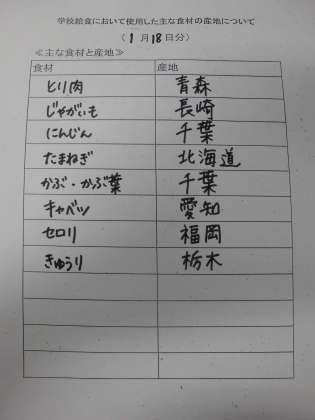 学校給食において使用した主な食材の産地について
（1月18日分）
≪主な食材と産地≫
食材 産地
とり肉 青森
じゃがいも 長崎
にんじん 千葉
たまねぎ 北海道
かぶ・かぶ葉 千葉
キャベツ 愛知
セロリ 福岡
きゅうり 栃木